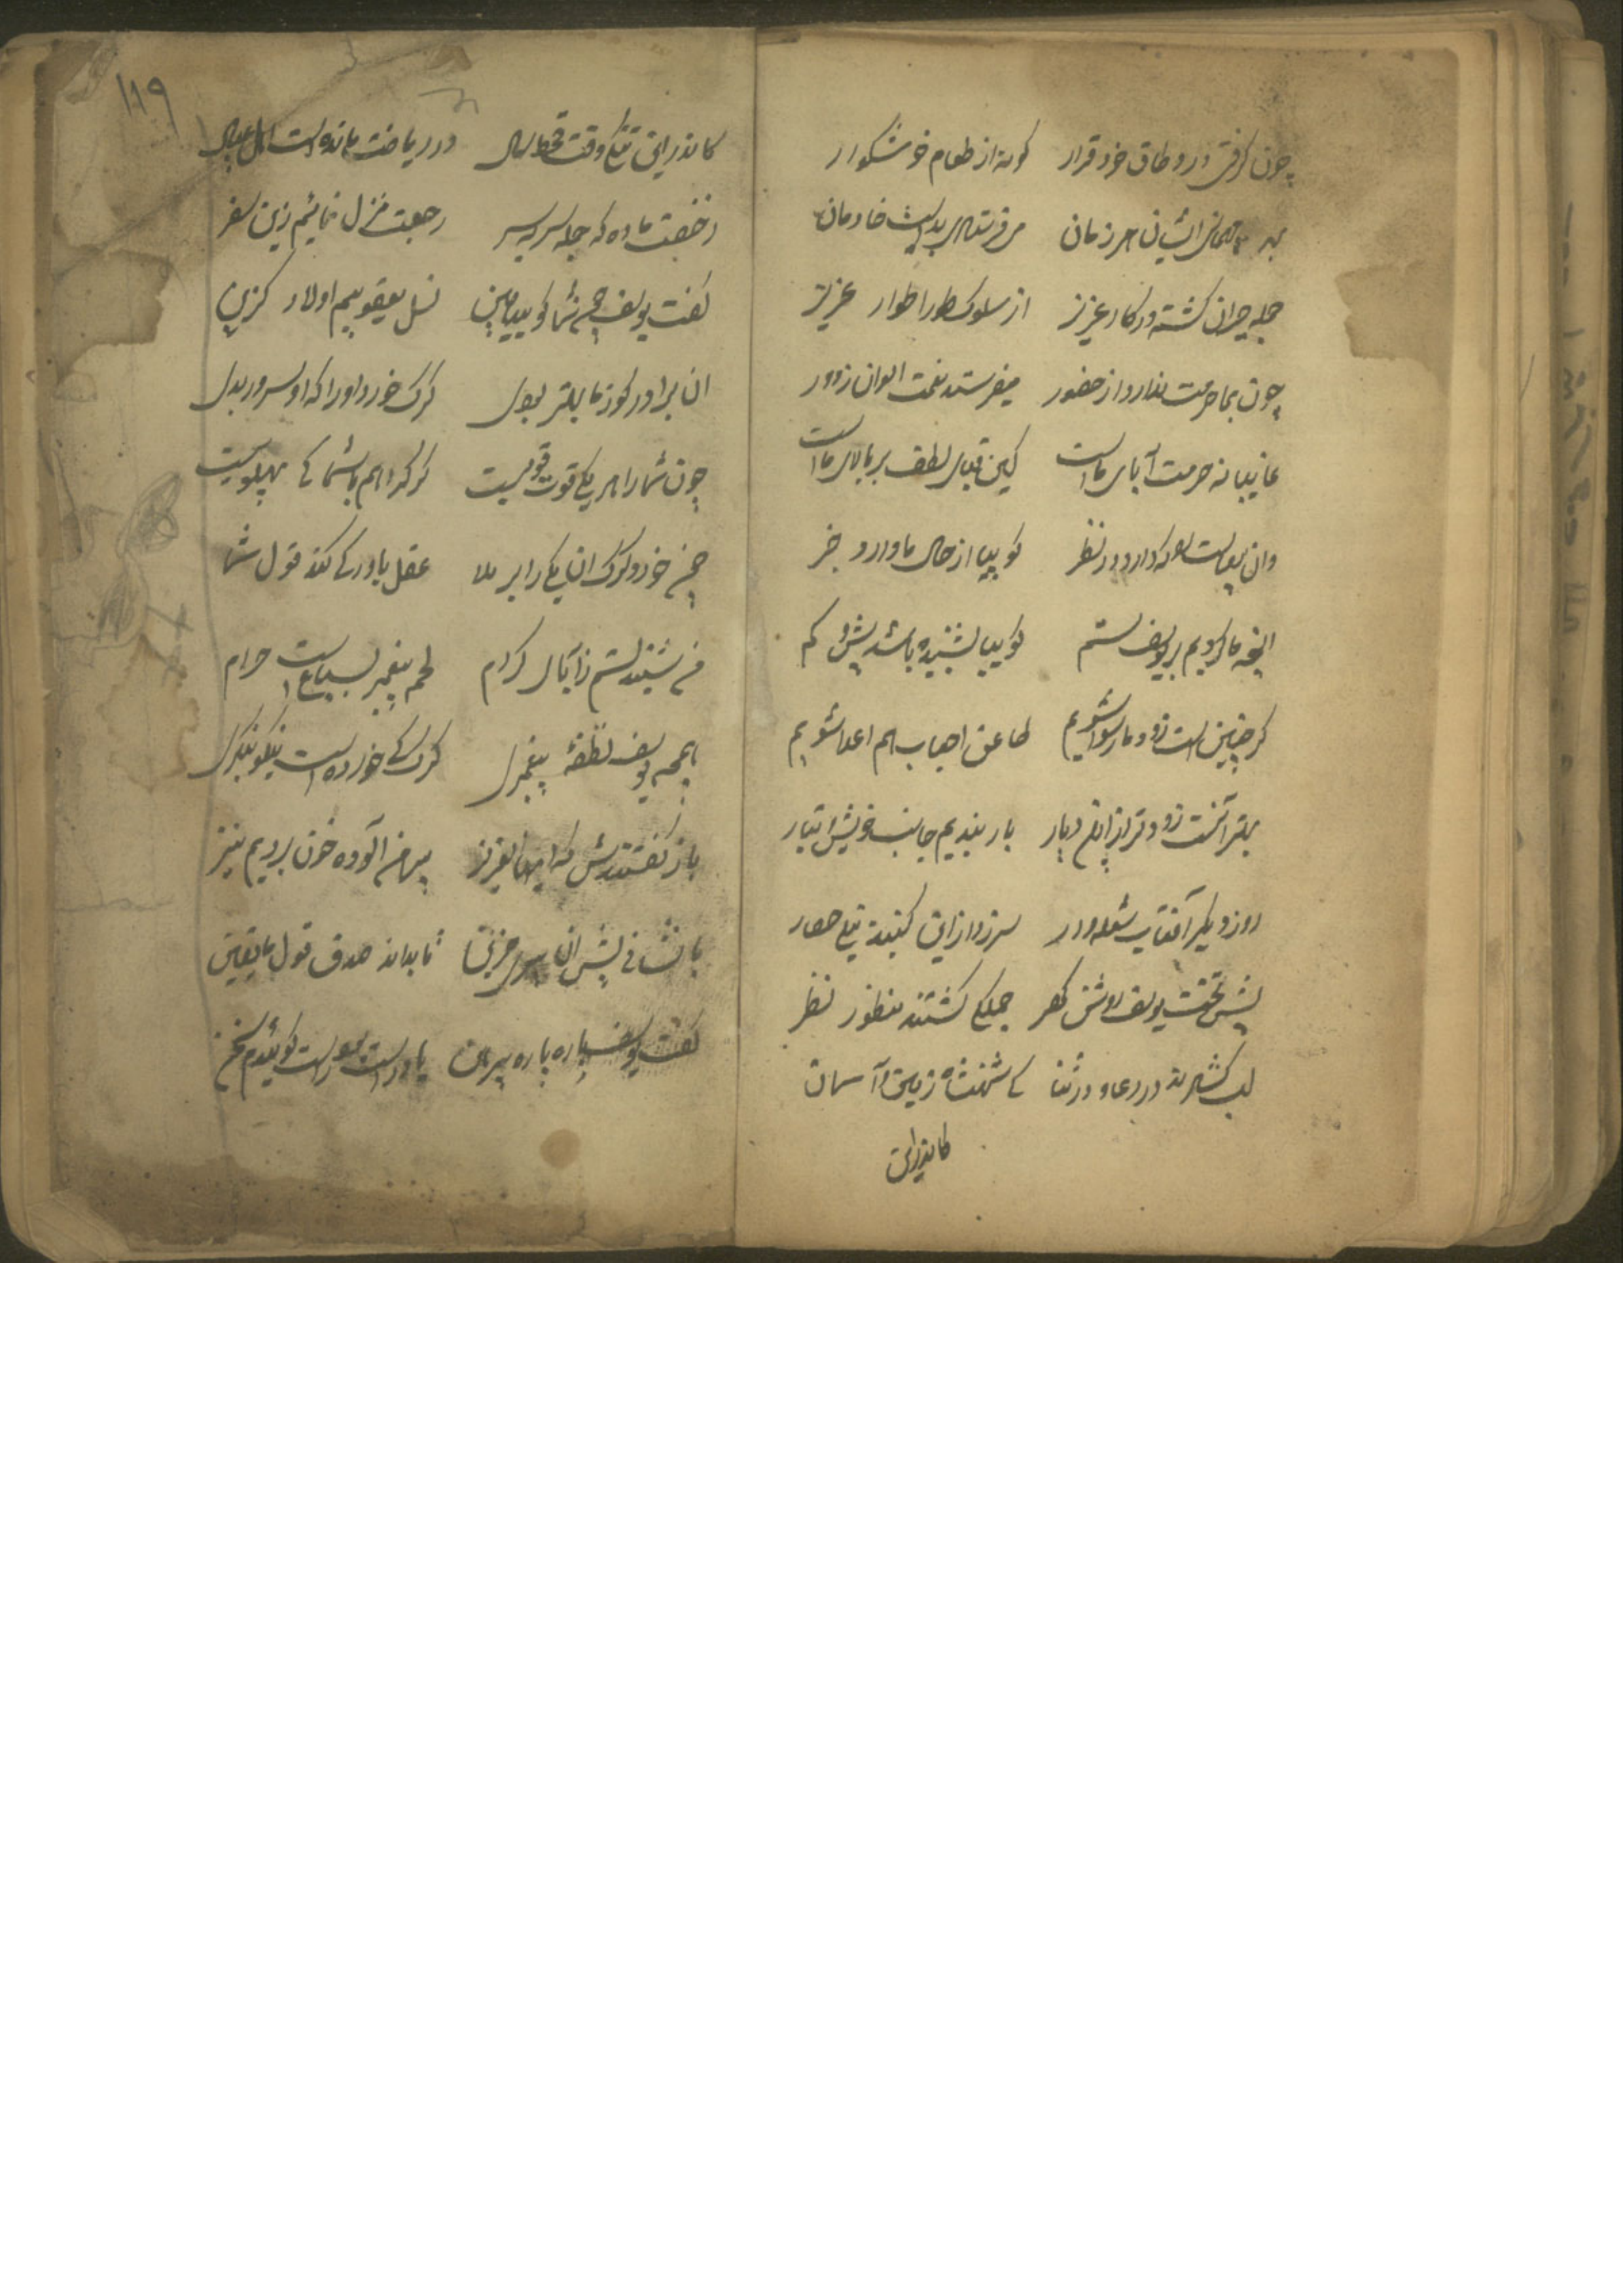 چون گرفتی در وطاق خود قرار گونه از طعام خوشگوار
بهر مهمانی ایشان هر زمان میفرستادی بدست خادمان
جمله حیران گشته در کار عزیز از سلوک طور اطوار عزیز
چون بما حرمت ندارد از حضور میفرستد نعمت الوان ز دور
غایبانه حرمت آبای ماست کین قبای لطف بر بالای ماست
وان پیاله که دارد در نظر گوییا از حال ما دارد خبر
انچه ما کردیم بر یوسف ستم گوییا بشنیده باشد بیش و کم
گر چنین است زود ما رسوا شویم طاعن احباب هم اعدا شویم
بهتر آنست زودتر از این دیار بار بندیم جانب خویش و تبار
روز دیگر آفتاب شعله‌دار سر زد از این گنبد نیلی حصار
پیش تخت یوسف روشن گهر جملگی گشتند منظور نظر
لب گشادند در دعا و در ثنا کی شهنشاه زمین و آسمان
کاندراین
۱۱۹
کاندراین تنگی وقت قحط سال در ریاضت مانده است اهل عیال
رخصت ما ده که جمله سر بسر رجعت منزل نمائیم زین سفر
گفت یوسف چون شما گویید چنین نسل یعقوبیم اولاد گزین
ان برادر کو ز ما بهتر بدی گرگ خورد اورا که او سرور بدی
چون شما را هر یکی قوت قویست گرگ را هم با شما کی پهلویست
چون خورد گرگ ان یکی را بر ملا عقل باور کی کند قول شما
من شنیدستم ز آبای کرام لحم پیغمبر سباع است حرام
همچو یوسف نطفهٔ پیغمبری گرگ کی خورده است نیکو بنگری
باز گفتندش که ایها العزیز پیرهن آلوده خون بردیم نیز
با نشانی پیش ان پیر حزین تا بداند صدق قول ما یقین
گفت یوسف پاره پاره پیرهن یا درست بود راست گوئیدم سخن